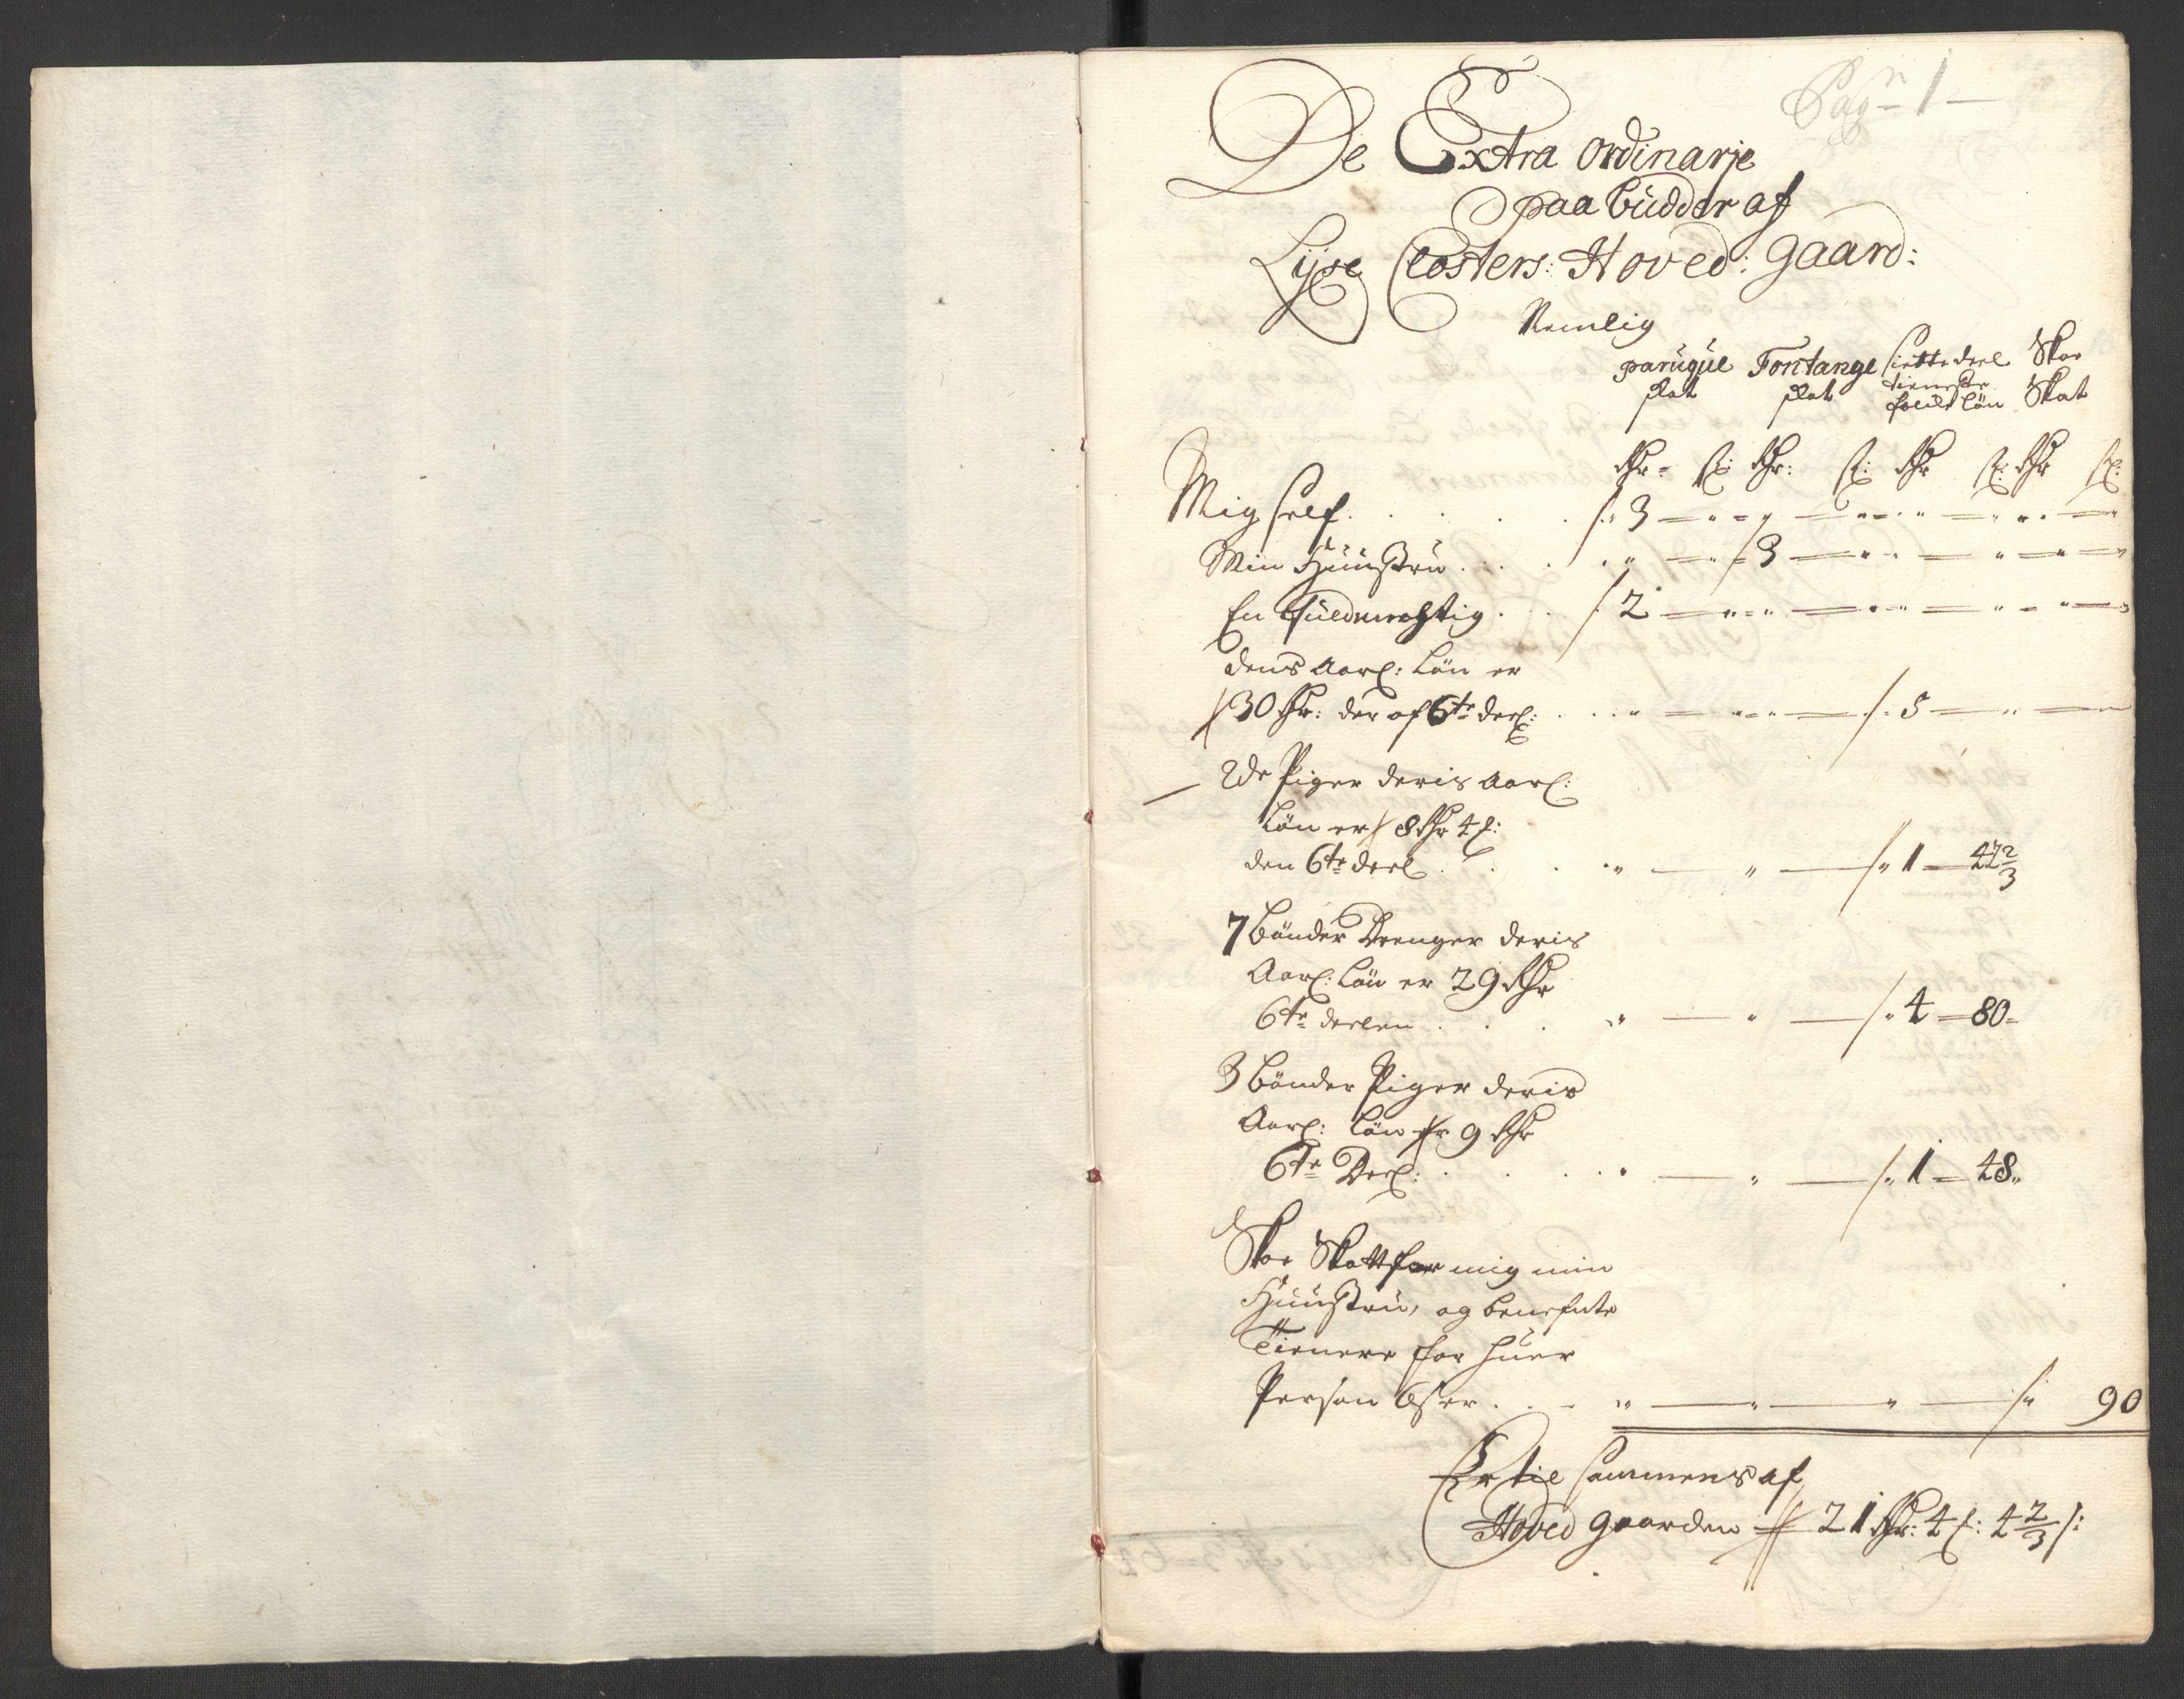 Pagn 1
De Extra ordinarje
paa budder af
Lyse Closters: Hoved: gaard:
Nemlig
paruque Fontange Siette deel Skoe
skat skat tieneste Skat
folckes lön
Rdr: ß: Rdr: ß: Rdr ß: Rdr ß:
Mig self . . . . /: 3 — " — " — " — " — " — " — "
Min Huustru . . . . " — " /3 — " — " — " — "
En fuldmechtig . . . /2 — " — " — " — " — " — "
dens Aarl: Lön er
30 Rdr: der af 6te deel: . . . " — " — /: 5 — " —
2de Piger deris Aarl:
Lön er 8 Rdr 4 ß:
den 6te deel . . . " — " — /" 1 — 42 2/3
7 bönder Drenger deris
Aarl: Lön er 29 Rdr
6te deelen . . . " — " — /" 4 — 80 -
3 bönder Piger deris
Aarl: Lön er 9 Rdr
6te Deel: . . . " — " — /" 1 — 48 "
Skoe Skatt for mig min
Huustru, og benefnte
Tienere for huer
Person 6 ß er . . . " — " — " — /" 90
Er til sammens af
Hoved gaarden 21 Rdr: 4 ß: 4 2/3 ß: